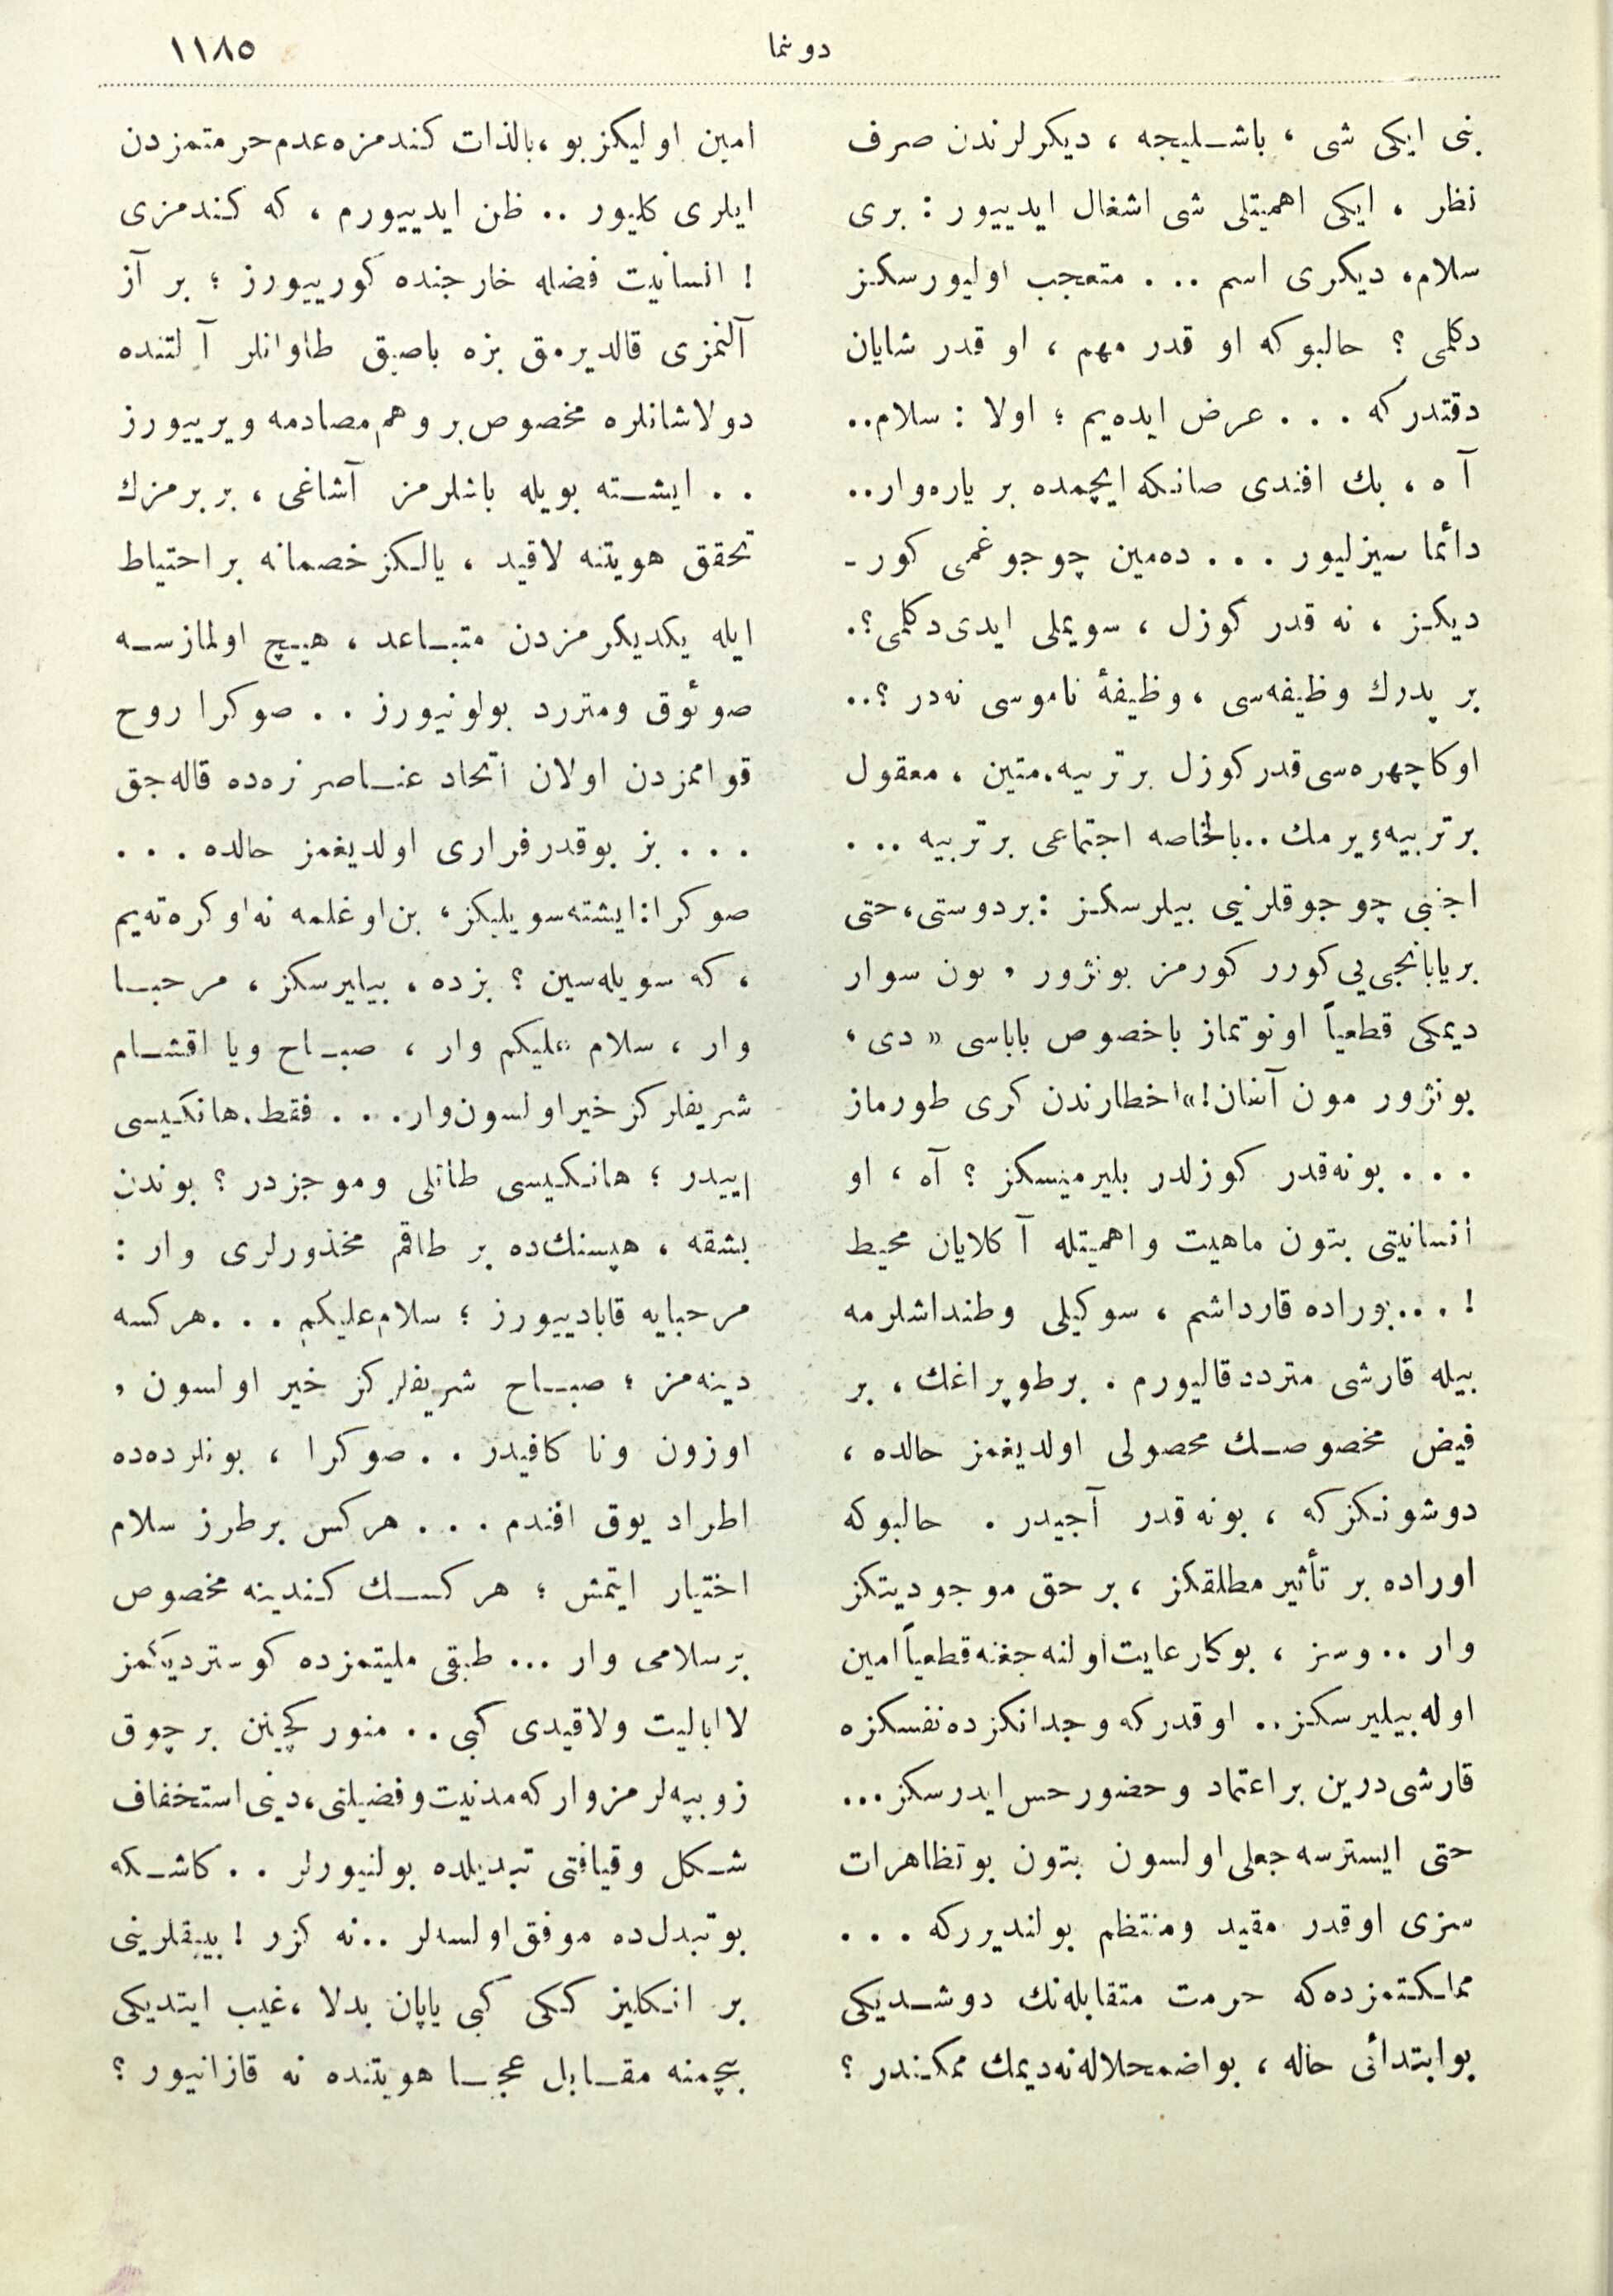 دوننما
١١٨٥
بنی ایکی شی ، باشـلیجه ، دیکرلرندن صرف
نظر ، ایکی اهمیتلی شی اشغال ایدییور : بری
سلام، دیکری اسم ... متعجب اولیورسکز
دکلمی ؟ حالبوکه او قدر مهم ، او قدر شایان
دقتدرکه ... عرض ایده‌یم ؛ اولا : سلام..
آه ، بك افندی صانکه ایچمده بر یاره‌وار..
دائما سیزلیور ... ده‌مین چوجوغمی کور ـ
دیکز ، نه قدر کوزل ، سویملی ایدی‌دکلمی؟.
بر پدرك وظیفه‌سی ، وظیفهٔ ناموسی نه‌در ؟..
اوکاچهره‌سی‌قدر کوزل بر تربیه.متین ، معقول
بر تربیه‌ویرمك ..بالخاصه اجتماعی بر تربیه ...
اجنبی چوجوقلرینی بیلرسکز : بردوستی،حتی
بریابانجی‌یی‌کورر کورمز بونژور ، بون سوار
دیمکی قطعیاً اونوتماز باخصوص باباسی « دی ،
بونژور مون آنفان!»اخطارندن کری طورماز
... بونه‌قدر کوزلدر بلیرمیسکز ؟ آه ، او
انسانیتی بتون ماهیت و اهمیتله آکلایان محیط
! ... بوراده قارداشم ، سوکیلی وطنداشلرمه
بیله قارشی متردد قالیورم . بر طوپراغك ، بر
فیض مخصوصـك محصولی اولدیغمز حالده ،
دوشونکزکه ، بونه قدر آجیدر . حالبوکه
اوراده بر تأثیر مطلقکز ، بر حق موجودیتکز
وار .. وسز ، بوکا رعایت‌اولنه‌جغنه‌قطعیاً امین
اوله‌بیلیرسکز .. اوقدرکه وجدانکزده‌نفسکزه
قارشی‌درین بر اعتماد و حضور حس ایدرسکز ...
حتی ایسترسه جعلی اولسون بتون بو تظاهرات
سزی اوقدر مقید ومنتظم بولندیررکه ...
مملکتمزده‌که حرمت متقابله‌نك دوشـدیکی
بو ابتدائی حاله ، بو اضمحلاله‌نه‌دیمك ممکندر ؟
امین اولیکز بو ،بالذات کندمزه‌عدم‌حرمتمزدن
ایلری کلیور .. ظن ایدییورم ، که کندمزی
! انسانیت فضله خارجنده کورییورز ؛ بر آز
آلنمزی قالدیرمق بزه باصیق طاوانلر آلتنده
دولاشانلره مخصوص‌بر وهم‌مصادمه ویرییورز
.. ایشـته بویله باشلرمز آشاغی ، بربرمزك
تحقق هویتنه لاقید ، یالـکز خصمانه بر احتیاط
ایله یکدیکرمزدن متبـاعد ، هیـچ اولمازسـه
صوئوق ومتردد بولونیورز .. صوکرا روح
قوامزدن اولان اتحاد عنـاصر نره‌ده قاله‌جق
... بز بوقدر فراری اولدیغمز حالده ...
صوکرا:ایشته‌سویلیکز، بن‌اوغلمه نه‌اوکره‌ته‌یم
، که سویله‌سین ؟ بزده ، بیلیرسکز ، مرحبـا
وار ، سلام علیکم وار ، صبـاح ویا اقشـام
شریفلرکز خیر اولسون‌وار ... فقط.هانکیسی
اییدر ؛ هانکیسی طاتلی وموجزدر ؟ بوندن
بشقه ، هپسنك‌ده بر طاقم محذورلری وار :
مرحبایه قابادییورز ؛ سلام‌علیکم ...هرکسه
دینه‌مز ؛ صبـاح شریفلرکز خیر اولسون ,
اوزون ونا کافیدر .. صوکرا ، بونلرده‌ده
اطراد یوق افندم ... هرکس بر طرز سلام
اختیار ایتمش ؛ هر کسـك کندینه مخصوص
بر سلامی وار ... طبقی ملیتمزده کوستردیکمز
لاابالیت ولاقیدی کبی .. منور کچینن بر چوق
زوپپه‌لرمز وارکه‌مدنیت‌وفضیلتی،دینی‌استخفاف
شـکل وقیافتی تبدیلده بولنیورلر .. کاشـکه
بو تبدل‌ده موفق‌اولسه‌لر ..نه کزر ! بییقلرینی
بر انکلیز ککی کبی یاپان بدلا ،غیب ایتدیکی
بیچمنه مقـابل عجبـا هویتنده نه قازانیور ؟